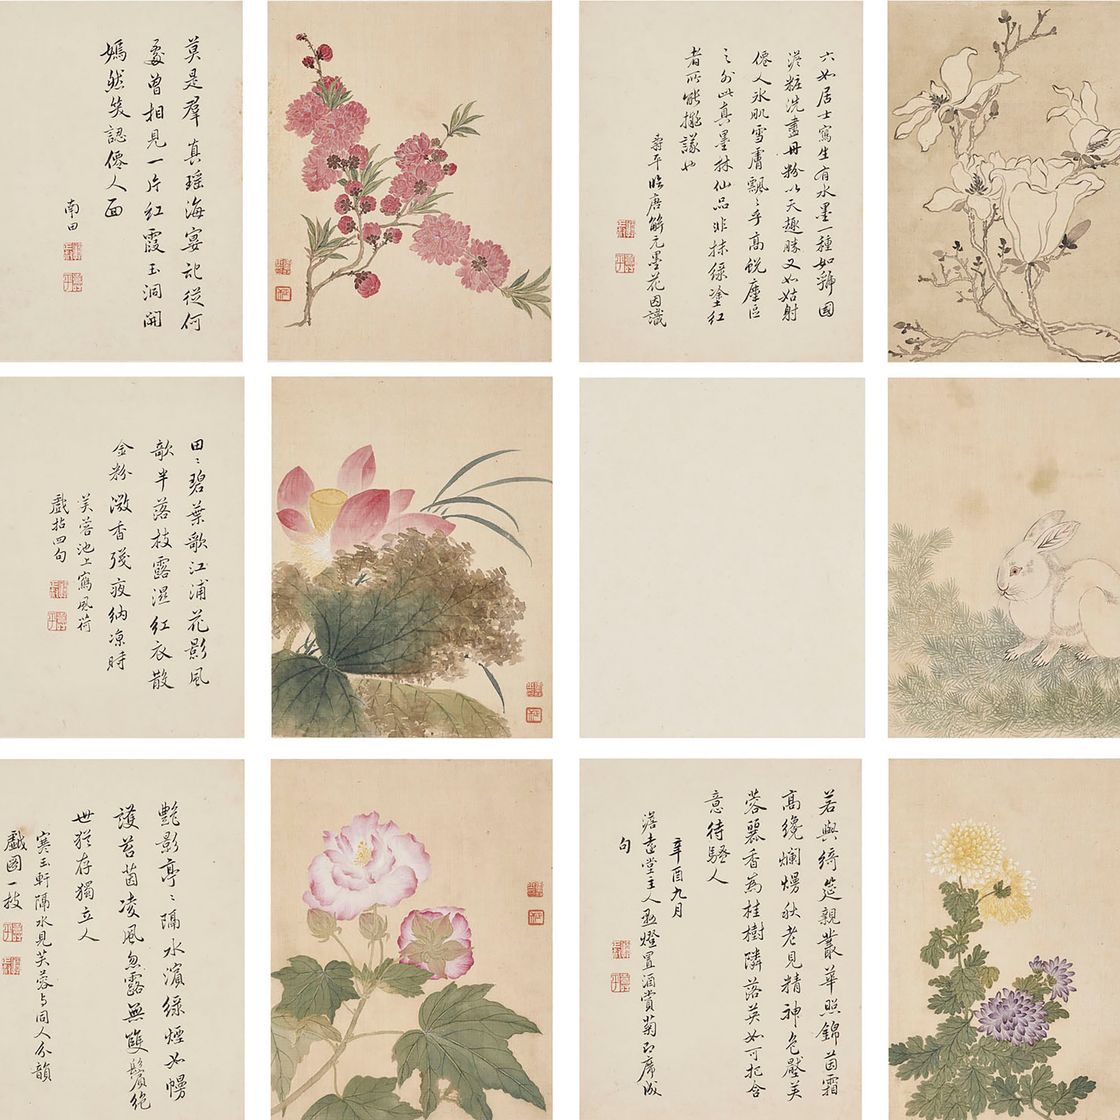 莫是群真瑶海宴記從何
處曾相見一片紅霞玉洞開
嫣然笑認僊人面
南田
六如居士寫生有水墨一種如虢國
澹粧洗盡丹粉以天趣勝又如姑射
僊人冰肌雪膚飄〻乎高蜕塵區
之外此真墨林仙品非抹綠塗紅
者所能擬議也
壽平臨唐解元墨花因識
田〻碧葉歌江浦花影風
欹半落枝露濕紅衣散
金粉微香殘夜納凉時
芙蓉池上寫風荷
戲拈四句
艷影亭〻隔水濱綠煙如幔
護苔茵凌風危露無雙鬢絶
世猶存獨立人
寒玉軒隔水見芙蓉与同人分韻
戲圖一枝
若與綺筵親叢華照錦茵霜
高纔爛熳秋老見精神色壓芙
蓉麗香為桂樹隣落英如可把含
意待騷人
辛酉九月
主人張燈置酒賞菊即席成
句